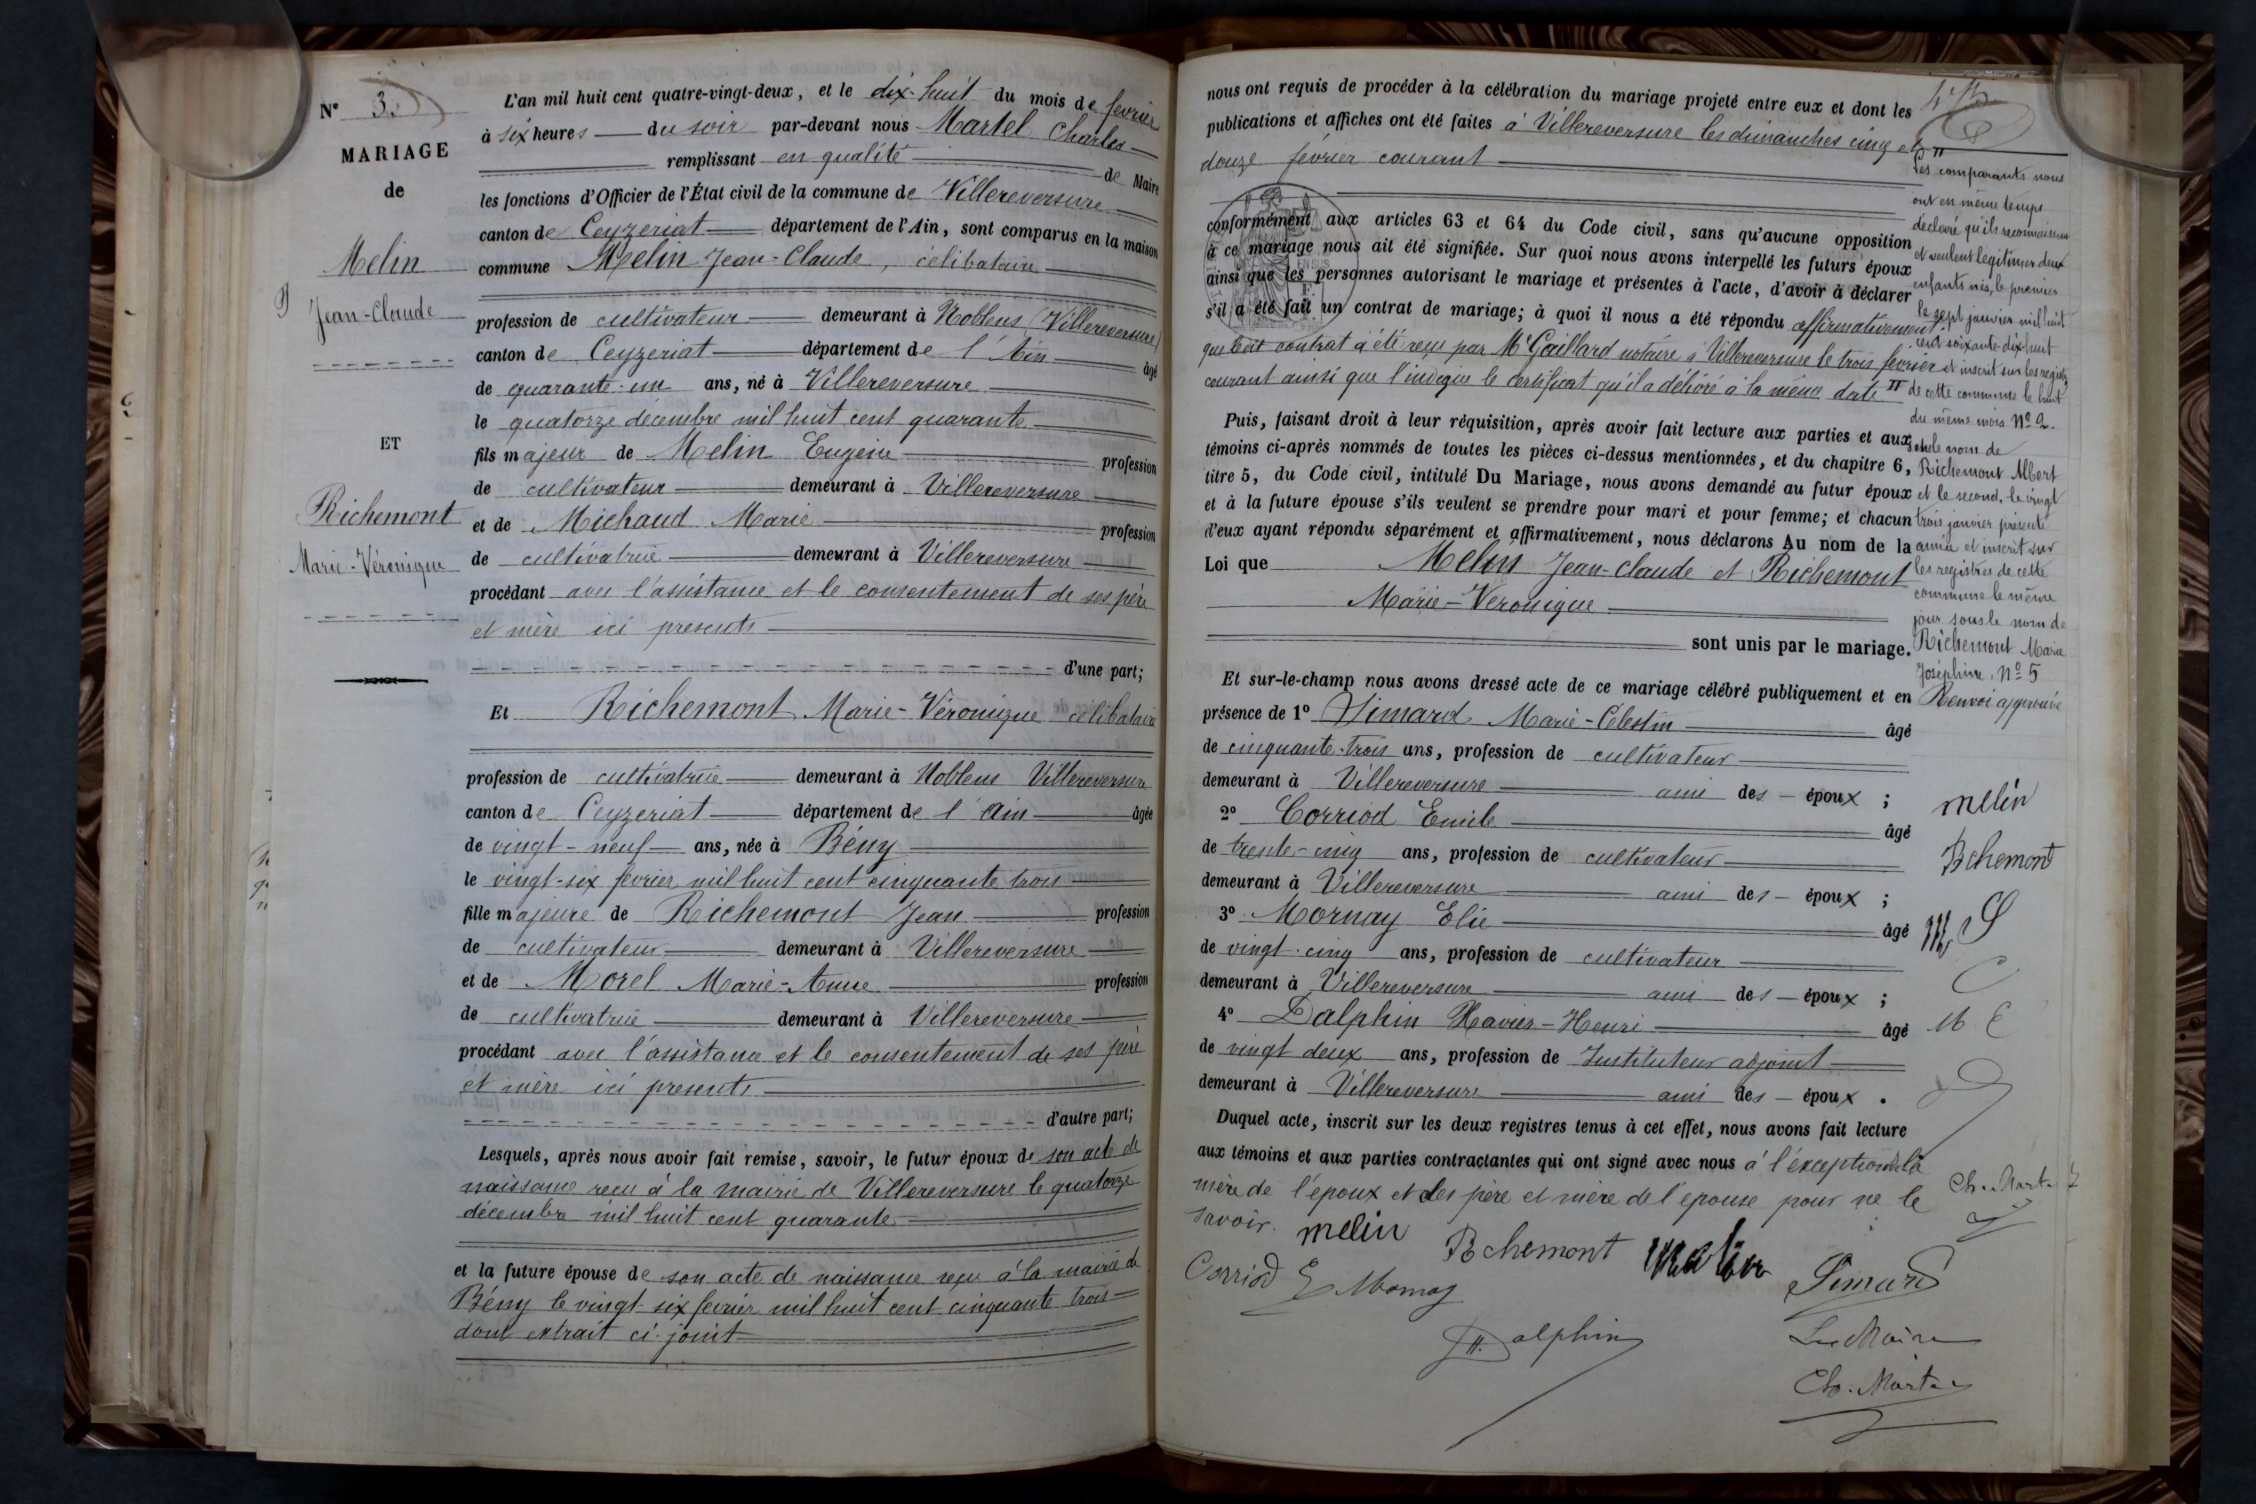 N° 3.
MARIAGE
de
Melin
Jean-Claude
ET
Richemont
Marie-Véronique
L'an mil huit cent quatre-vingt-deux, et le dix-huit du mois de fevrier
à six heures du soir par-devant nous Martel Charles
remplissant en qualité de Maire
les fonctions d'Officier de l'État civil de la commune de Villereversure
canton de Ceyzeriat département de l'Ain, sont comparus en la maison
commune Melin Jean-Claude, célibataire
profession de cultivateur demeurant à Noblens (Villereversure)
canton de Ceyzeriat département de l'Ain âgé
de quarante-un ans, né à Villereversure
le quatorze décembre mil huit cent quarante
fils majeur de Melin Eugène profession
de cultivateur demeurant à Villereversure
et de Michaud Marie profession
de cultivatrice demeurant à Villereversure
procédant avec l'assistance et le consentement de ses père
et mère ici presents
d'une part;
Et Richemont Marie-Véronique célibataire
profession de cultivatrice demeurant à Noblens Villereversure
canton de Ceyzeriat département de l'Ain âgée
de vingt-neuf ans, née à Bény
le vingt-six fevrier mil huit cent cinquante trois
fille majeure de Richemont Jean profession
de cultivateur demeurant à Villereversure
et de Morel Marie-Anne profession
de cultivatrice demeurant à Villereversure
procédant avec l'assistance et le consentement de ses père
et mère ici presents
d'autre part;
Lesquels, après nous avoir fait remise, savoir, le futur époux de son acte de
naissance reçu à la mairie de Villereversure le quatorze
décembre mil huit cent quarante
et la future épouse de son acte de naissance reçu à la mairie de
Bény le vingt-six fevrier mil huit cent cinquante trois
dont extrait ci-joint
nous ont requis de procéder à la célébration du mariage projeté entre eux et dont les
publications et affiches ont été faites à Villereversure les dimanches cinq et
douze février courant
conformément aux articles 63 et 64 du Code civil, sans qu'aucune opposition
à ce mariage nous ait été signifiée. Sur quoi nous avons interpellé les futurs époux
ainsi que les personnes autorisant le mariage et présentes à l'acte, d'avoir à déclarer
s'il a été fait un contrat de mariage; à quoi il nous a été répondu affirmativement.
que ledit contrat a été reçu par Me Gaillard notaire à Villereversure le trois fevrier
courant ainsi que l'indique le certificat qu'il a délivré à la même date
Puis, faisant droit à leur réquisition, après avoir fait lecture aux parties et aux
témoins ci-après nommés de toutes les pièces ci-dessus mentionnées, et du chapitre 6,
titre 5, du Code civil, intitulé Du Mariage, nous avons demandé au futur époux
et à la future épouse s'ils veulent se prendre pour mari et pour femme; et chacun
d'eux ayant répondu séparément et affirmativement, nous déclarons Au nom de la
Loi que Melin Jean-Claude et Richemont
Marie-Veronique
sont unis par le mariage.
Et sur-le-champ nous avons dressé acte de ce mariage célébré publiquement et en
présence de 1° Simard Marie-Célestin âgé
de cinquante-trois ans, profession de cultivateur
demeurant à Villereversure ami des époux ;
2° Corriod Emile âgé
de trente-cinq ans, profession de cultivateur
demeurant à Villereversure ami des époux ;
3° Mornay Elie âgé
de vingt-cinq ans, profession de cultivateur
demeurant à Villereversure ami des époux ;
4° Dalphin Xavier-Henri âgé
de vingt deux ans, profession de Instituteur adjoint
demeurant à Villereversure ami des époux .
Duquel acte, inscrit sur les deux registres tenus à cet effet, nous avons fait lecture
aux témoins et aux parties contractantes qui ont signé avec nous à l'exception de la
mère de l'époux et des père et mère de l'epouse pour ne le
savoir.
melin Richemont melin Simard
Corriod E Mornay
H. Dalphin
Le Maire
Ch. Martel
Les comparants nous
ont en même temps
déclaré qu'ils reconnaissent
et veulent légitimer deux
enfants nés, le premier
le sept janvier mil huit
cent soixante-dix-huit
et inscrit sur les registres
de cette commune le huit
du même mois N° 2.
sous le nom de
Richemont Albert
et le second, le vingt
trois janvier présente
année et inscrit sur
les registres de cette
commune le même
jour sous le nom de
Richemont Marie
Joséphine, N° 5
Renvoi approuvé
melin
Richemont
S
C
M E
D
Ch. Martel